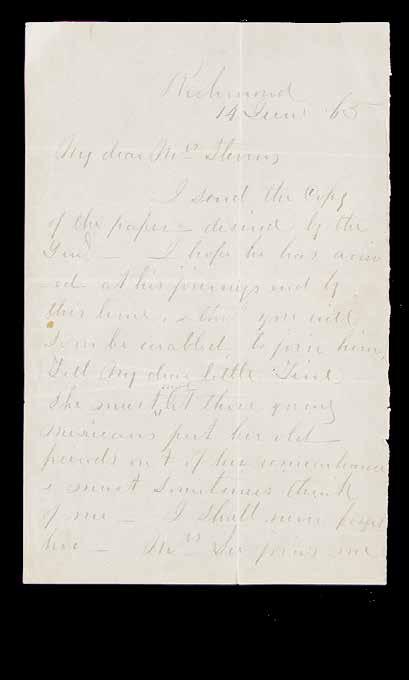 Richmond
14 June '65
My dear Mrs Stevens,
I send the copy
of the paper - desired by the
Genl - I hope he has arriv
ed at his journeys end by
this time, & that you will
soon be enabled to join him.
Tell my dear little
she must not let those young
mexicans put her old
friends out of her remembrance
& must sometimes think
of me - I shall never forget
her - Mrs Lee joins me